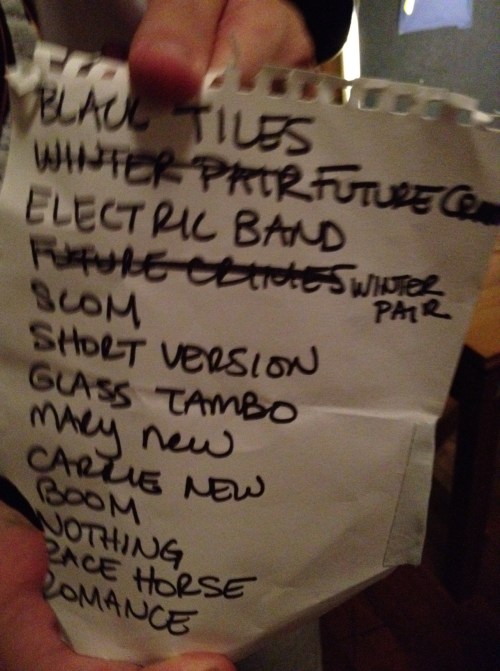 BLACK TILES
WINTER PAIR FUTURE CRIM
ELECTRIC BAND
FUTURE CRIMES WINTER
PAIR
SCOM
SHORT VERSION
GLASS TAMBO
MARY NEW
CARRIE NEW
BOOM
NOTHING
RACE HORSE
ROMANCE